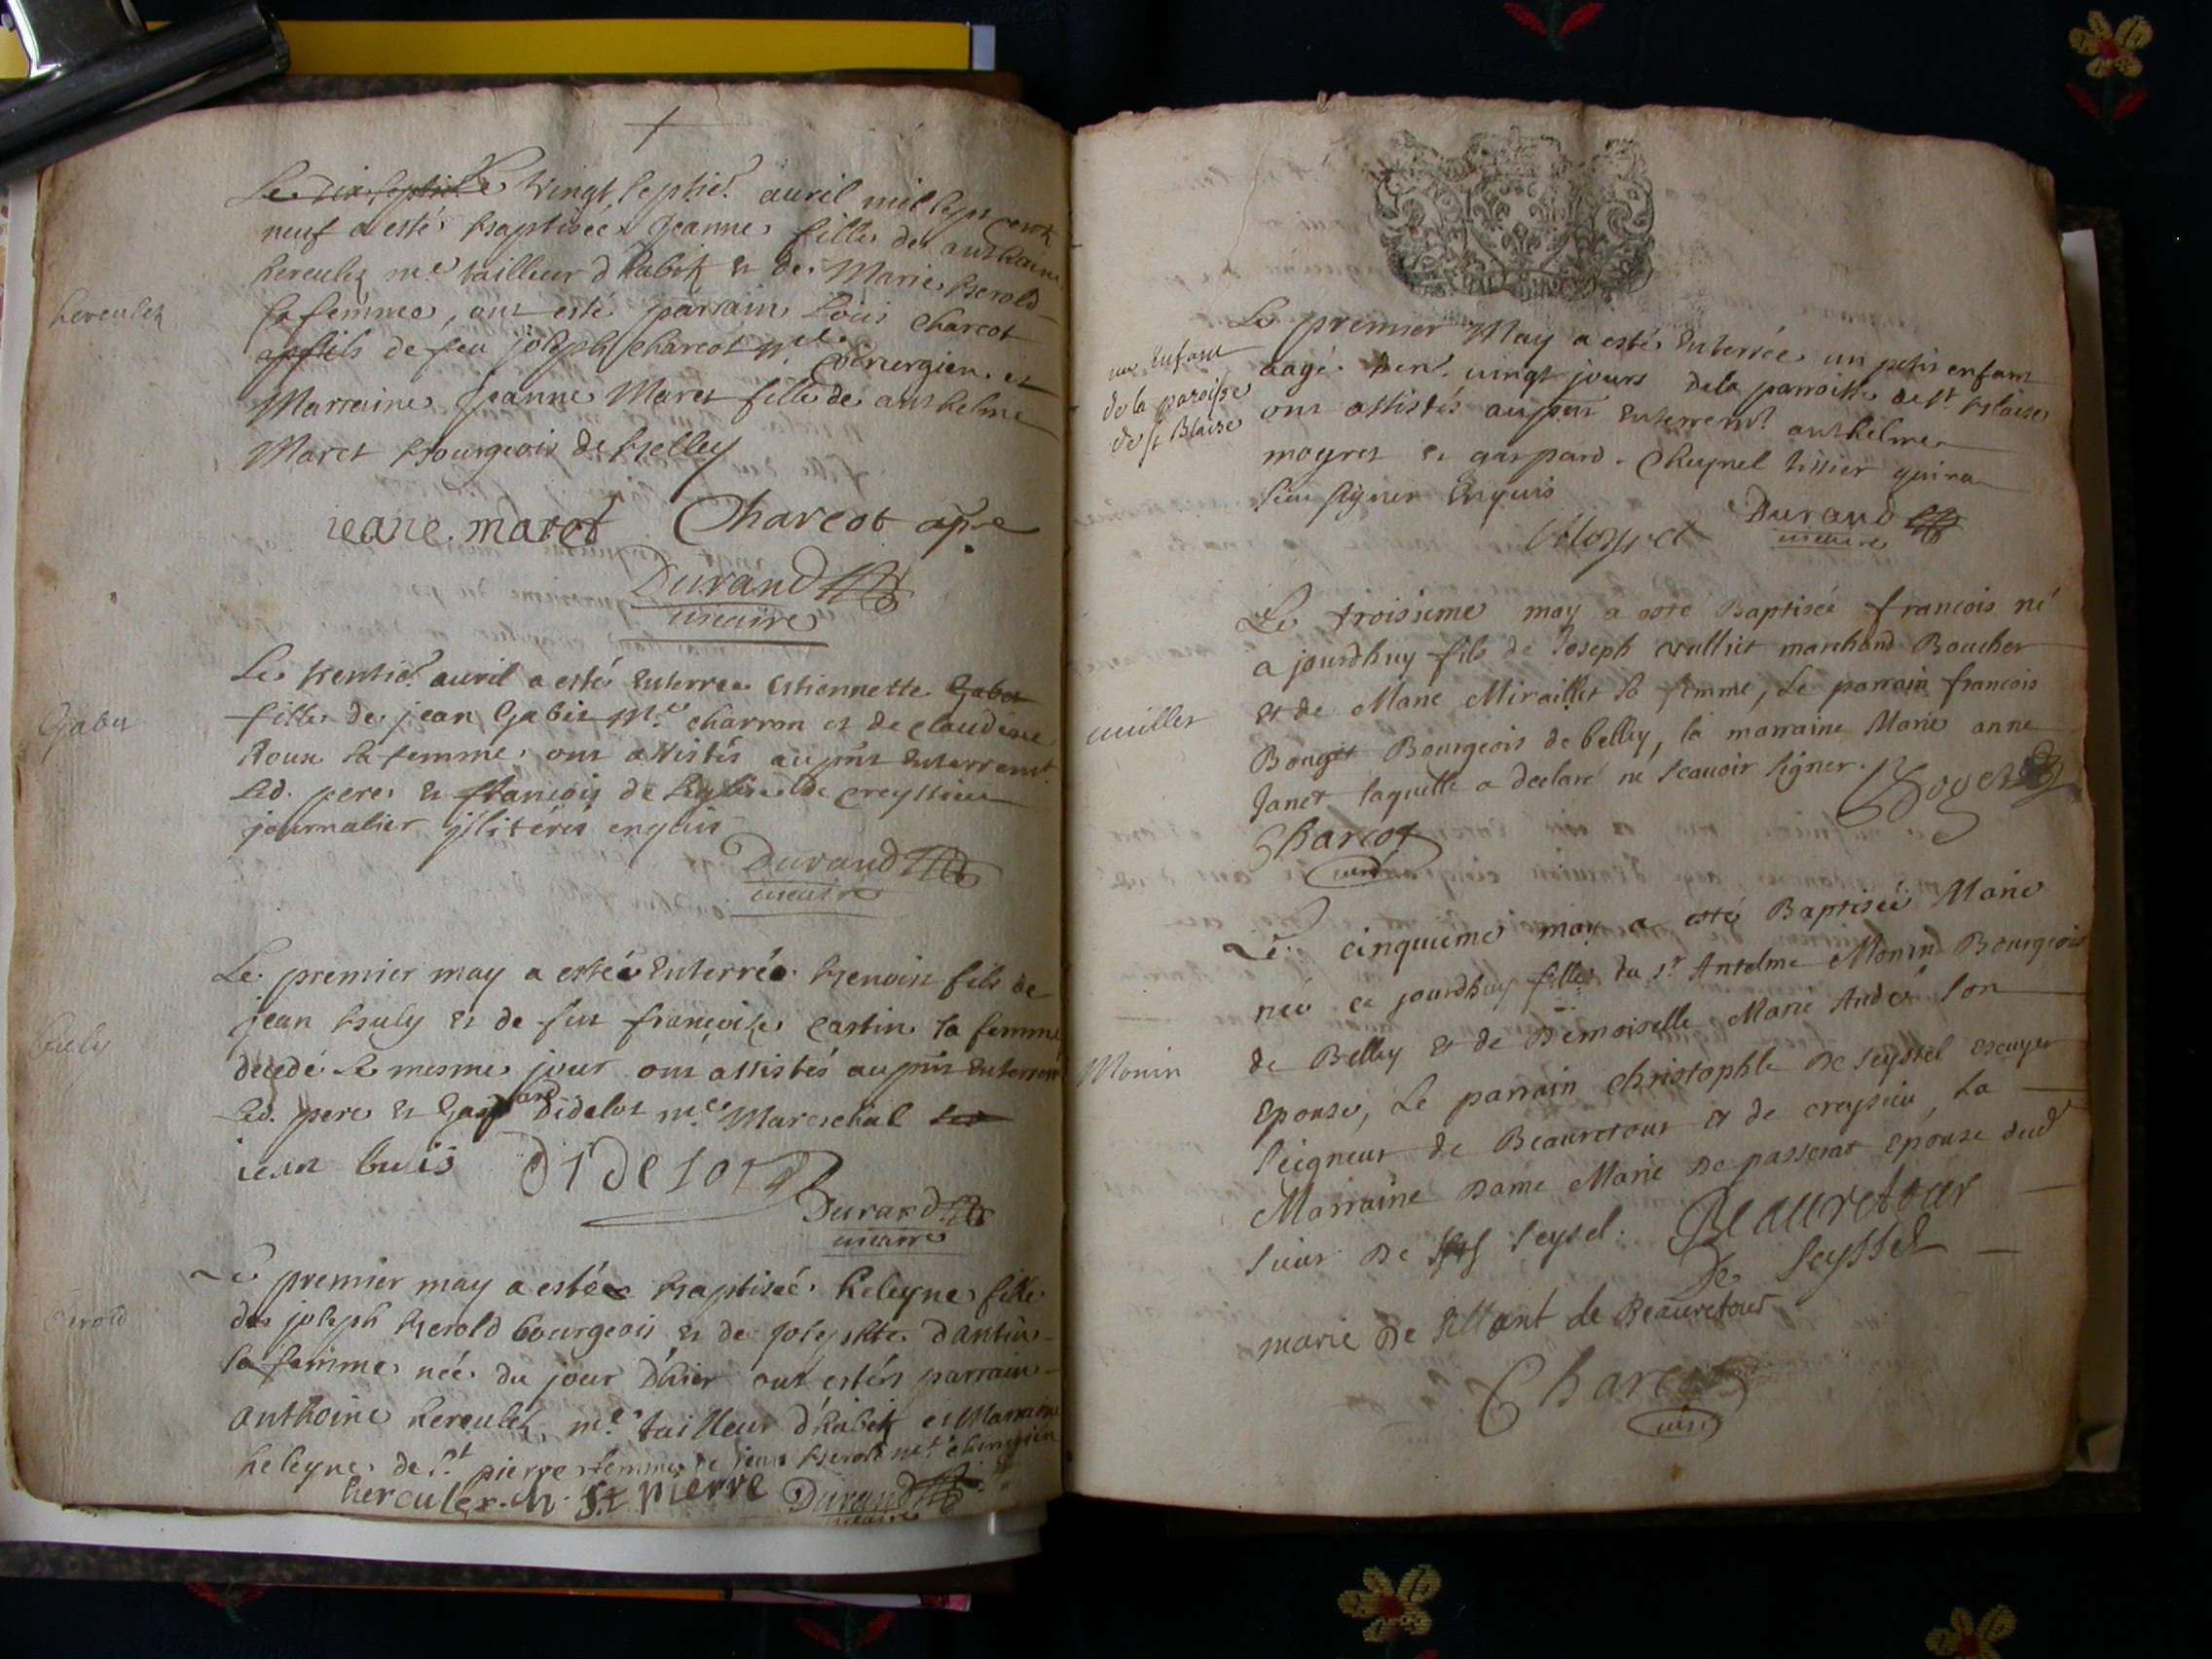 Le vingt septie. avril mil sept cent
neuf a esté baptisée Jeanne fille de anthoine
herculez me. tailleur d'habit & de Marie berold
sa femme, ont esté parrain Loüis Charcot
fils de feu joseph charcot me. chirurgien et
Marraine Jeanne Maret fille de anthelme
Maret bourgeois de belley
herculez
jeane. maret Charcot
Durand
vicaire
Le trentie. avril a esté enterrée Estiennette Gabet
fille de jean Gabet me. charron et de claudine
Roux sa femme, ont assistés au pnt enterremt.
Led. pere & françois de
journalier illiterés enquis
Gabet
Durand
vicaire
Le premier may a esté enterré benoist fils de
jean buly & de françoise castin sa femme
decedé le mesme jour ont assistés au pnt enterremt
Led. pere & Gaspard Didelot me. Mareschal
buly
jean
Didelot
Durand
vicaire
Le premier may a esté baptisée heleyne fille
de joseph berold bourgeois & de josephte dantin
sa femme née du jour d'hier ont estés parrain
anthoine herculez, me. tailleur d'habit et Marraine
heleyne de St pierre femme de jean berold me. chirurgien
berold
herculez. h. St pierre Durand
vicaire
un enfant
de la paroisse
de st Blaise
Le premier May a esté enterrée un petit enfant
aagé d'en. vingt jours de la parroisse de st. blaise
ont assistés au pnt enterremt. anthelme
moyret & gaspard Cheynel tissier qui n'a
sceu signer enquis
Moyret Durand
vicaire
Le troisieme may a esté Baptisée francois né
a jourdhuy fils de Joseph vulliet marchand Boucher
et de Marie Miraillet sa femme, Le parrain francois
Bouget Bourgeois de belley, la marraine Marie anne
Janet laquelle a declaré ne scavoir signer.
vuillet
Boget
Charcot
curé
Le cinquieme may a esté Baptisée Marie
née ce jourdhuy fille du sr. Antelme Monin Bourgeois
de Belley et de Demoiselle Marie André son
Epouse, Le parrain christophle de seyssel escuyer
seigneur de Beauretour et de creysieu, La
Marraine Dame Marie De passerat epouse dud
sieur De seysel.
Monin
Beauretour
De Seyssel
marie De de Beauretour
Charcot
curé